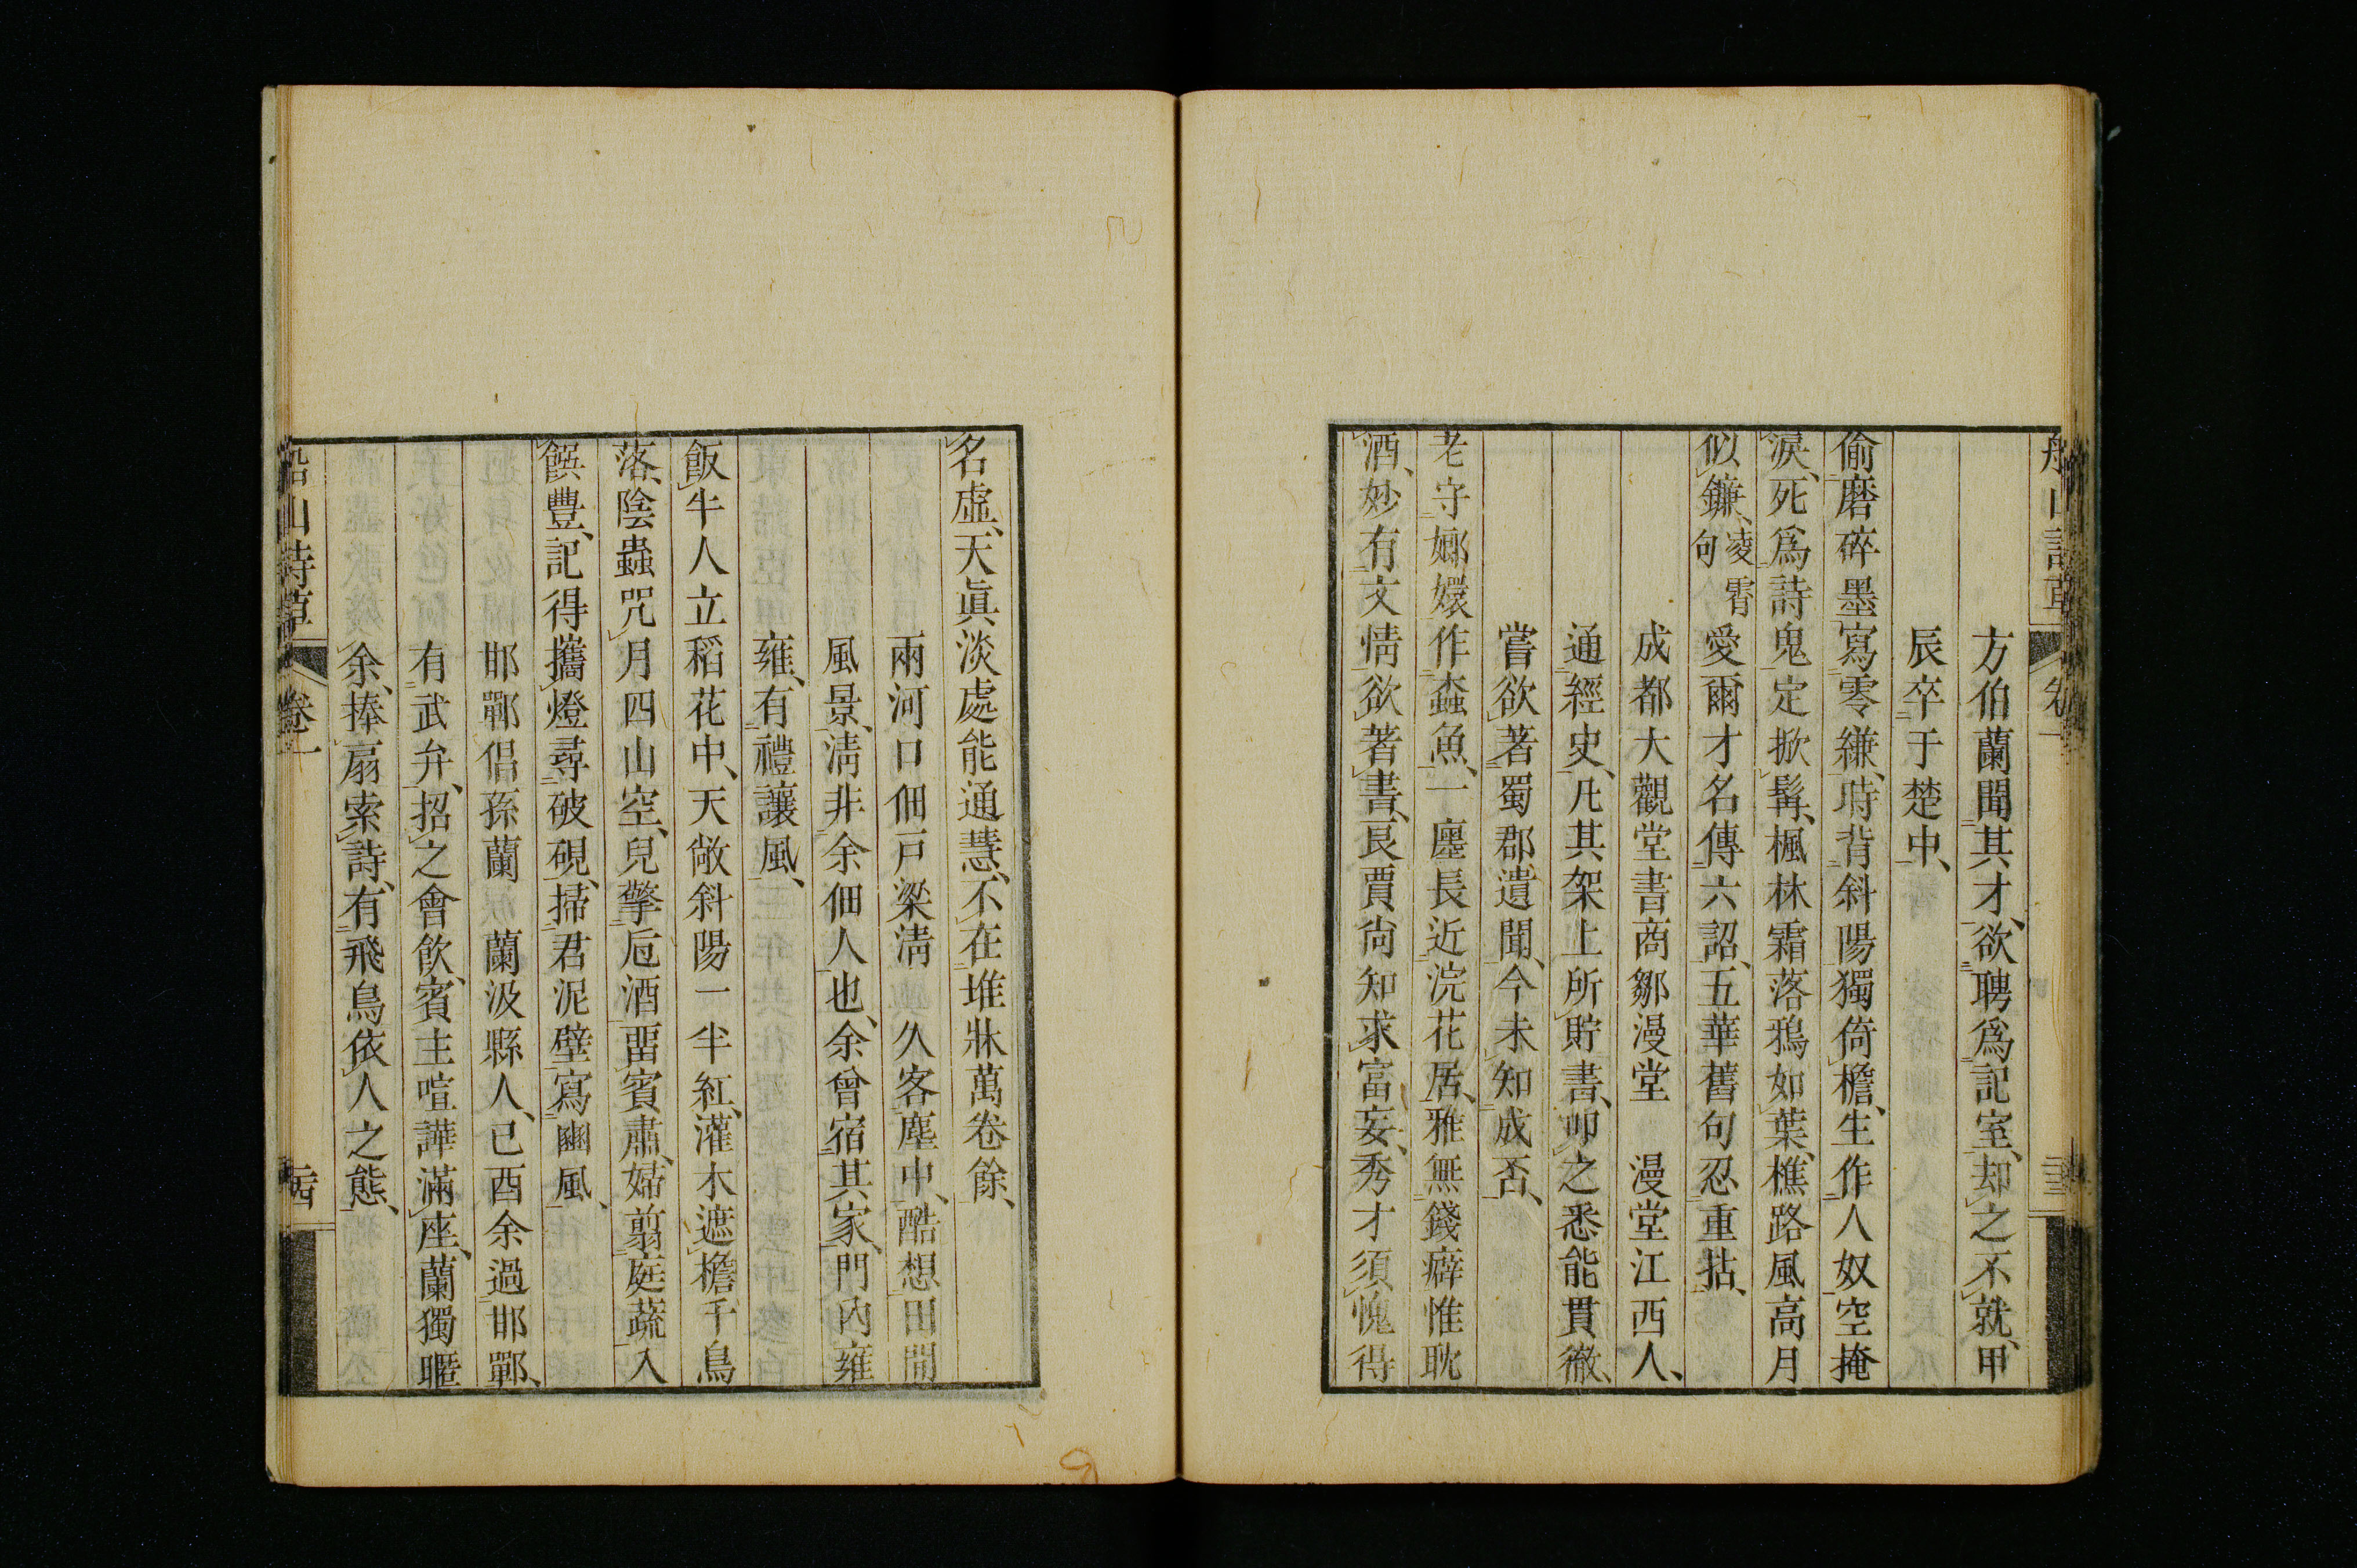 船山詩草
卷一
方伯蘭聞其才、欲聘爲記室、却之不就、甲
辰卒于楚中、
偷磨碎墨寫零縑、時背斜陽獨倚檐、生作人奴空掩
淚、死爲詩鬼定掀髯、楓林霜落鴉如葉、樵路風高月
似鐮、凌霄句愛爾才名傳六詔、五華舊句忍重拈、
成都大觀堂書商鄒漫堂 漫堂江西人、
通經史、凡其架上所貯書、叩之悉能貫徹、
嘗欲著蜀郡遺聞、今未知成否、
老守嫏嬛作蠹魚、一廛長近浣花居、雅無錢癖惟耽
酒、妙有文情欲著書、良賈尚知求富妄、秀才須愧得
名虛、天眞淡處能通慧、不在堆牀萬卷餘、
兩河口佃戸梁淸 久客塵中、酷想田間
風景、淸非余佃人也、余曾宿其家、門內雍
雍、有禮讓風、
飯牛人立稻花中、天敞斜陽一半紅、灌木遮檐千鳥
落、陰蟲咒月四山空、兒擎卮酒畱賓肅、婦翦庭蔬入
饌豐、記得攜燈尋破硯、掃君泥壁寫豳風、
邯鄲倡孫蘭 蘭汲縣人、已酉余過邯鄲、
有武弁、招之會飮、賓主喧譁滿座、蘭獨暱
余、捧扇索詩、有飛鳥依人之態、
船山詩草
卷一